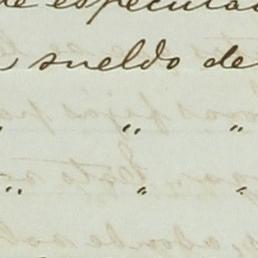 de especula
sueldo de
" " "
" " "